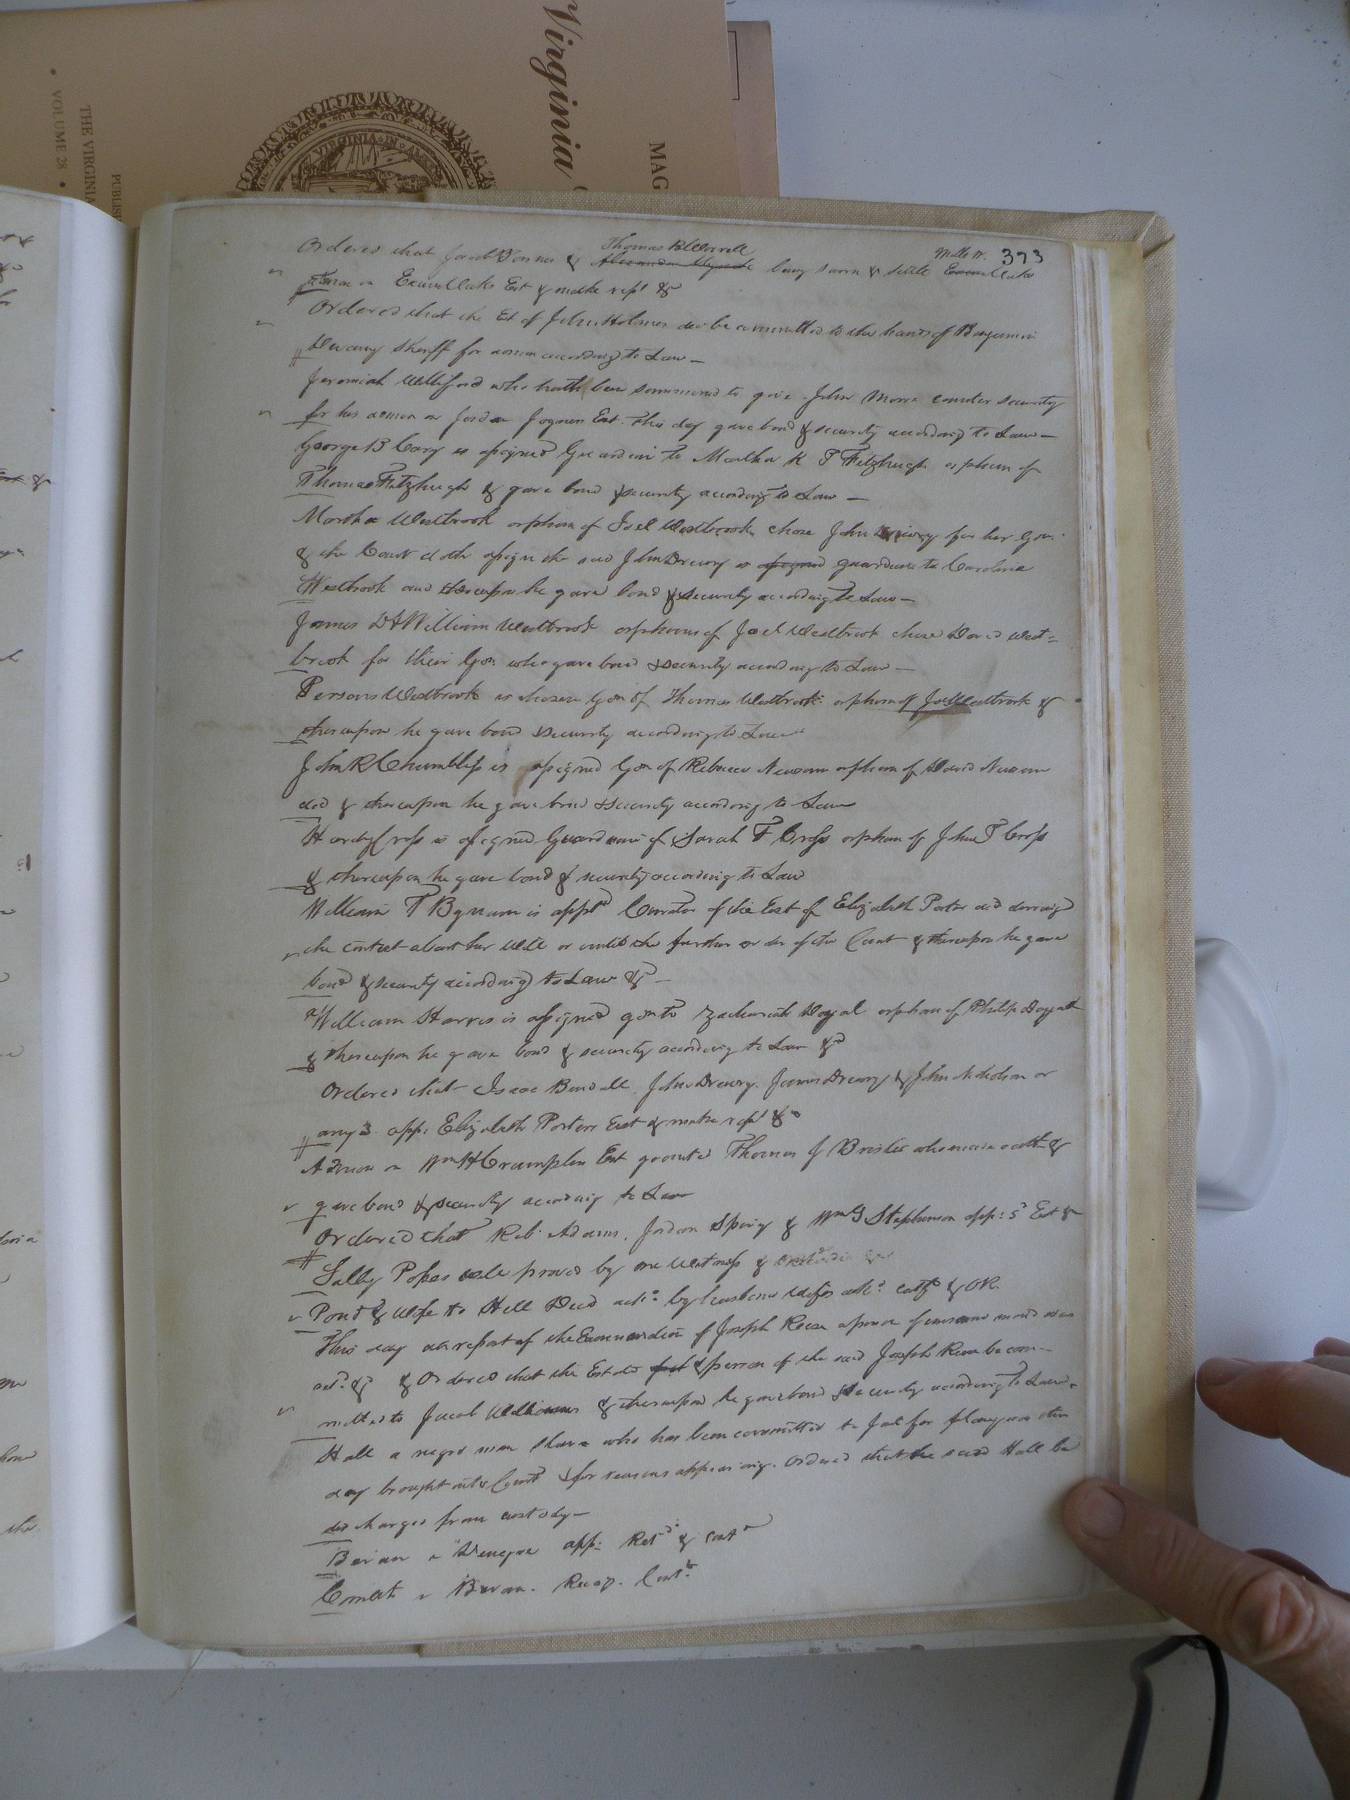 Virginia
MAG
THE VIRGINIA
VOLUME 28
PUBLIS
VIRGINIA
373
Thomas B Worrell
Mills W.
Ordered that Jacob Bonner & being sworn & settle
on Est & make rept &c
Ordered that the Est of John Holmes dec be committed to the hands of Benjamin
Devany Sheriff for admon according to Law —
Jeremiah Williford who hath been summoned to give John Moore counter security
for his admon on Jordan Joyners Est. This day gave bond & security according to Law —
George B Cary is assigned Guardian to Martha K T Fitzhugh orphan of
Thomas Fitzhugh & gave bond & security according to Law —
Martha Westbrook orphan of Joel Westbrook chose John Drewry for her Gon.
& the Court doth assign the said John Drewry as assigned guardian to Caroline
Westbrook and thereupon he gave bond & security according to Law —
James D & William Westbrook orphans of Joel Westbrook chose David West=
brook for their Gon who gave bond & security according to Law —
Persons Westbrook is chosen Gon of Thomas Westbrook orphan of Joel Westbrook &
thereupon he gave bond & security according to Law
John R Chambliss is assigned Gon of Rebecca Newsom orphan of David Newsom
decd & thereupon he gave bond & security according to Law
Hardy Cross is assigned Guardian of Sarah F Cross orphan of John T Cross
& thereupon he gave bond & security according to Law
William T Bynum is apptd Curator of the Est of Elizabeth Porter decd during
the contest about her Will or until the further order of the Court & thereupon he gave
bond & security according to Law &c —
William Harris is assigned gon to Zachariah Doyal orphan of Philip Doyal
& thereupon he gave bond & security according to Law &c
Ordered that Isaac Bendall, John Drewry, James Drewry & John Nicholson or
any 3 app: Elizabeth Porters Est & make rept &c
Admon on Wm H Crumpler Est granted Thomas J Brister who made oath &
gave bond & security according to Law
Ordered that Rob Adams, Jordan Spivy & Wm G Stephenson app: sd Est &c
Sally Popes Will proved by one Witness &
Pond & Wife to Hill Deed ackd by husband wifes ackt certfd & OR.
This day the report of the Examination of Joseph Reese a person of unsound mind was
retd &c & Ordered that the Estate & person of the said Joseph Reese be com=
mitted to Jacob Williams & thereupon he gave bond & security according to Law.
Hall a negro man slave who has been committed to Jail for felony was this
day brought into Court & for reasons appearing. Ordered that the said Hall be
discharged from custody —
app: Retd & contd
v Recog. Contd